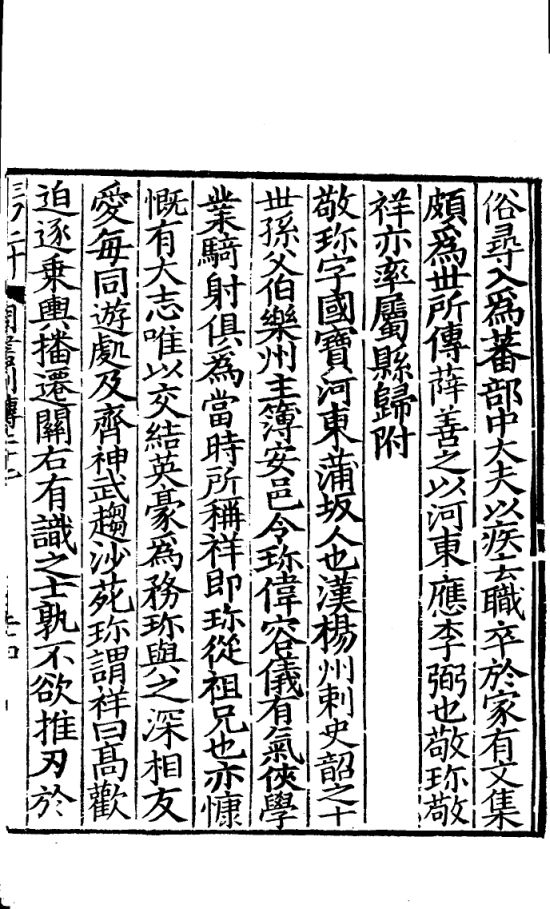 俗尋入爲蕃部中大夫以疾去職卒於家有文集
頗爲世所傳薛善之以河東應李弼也敬珎敬
祥亦率屬縣歸附
敬珎字國寶河東蒲坂人也漢楊州刺史韶之十
世孫父伯樂州主簿安邑令珎偉容儀有氣俠學
業騎射俱爲當時所稱祥即珎從祖兄也亦慷
慨有大志唯以交結英豪爲務珎與之深相友
愛每同遊處及齊神武趨沙苑珎謂祥曰高歡
迫逐乗輿播遷關右有識之士孰不欲推刃於